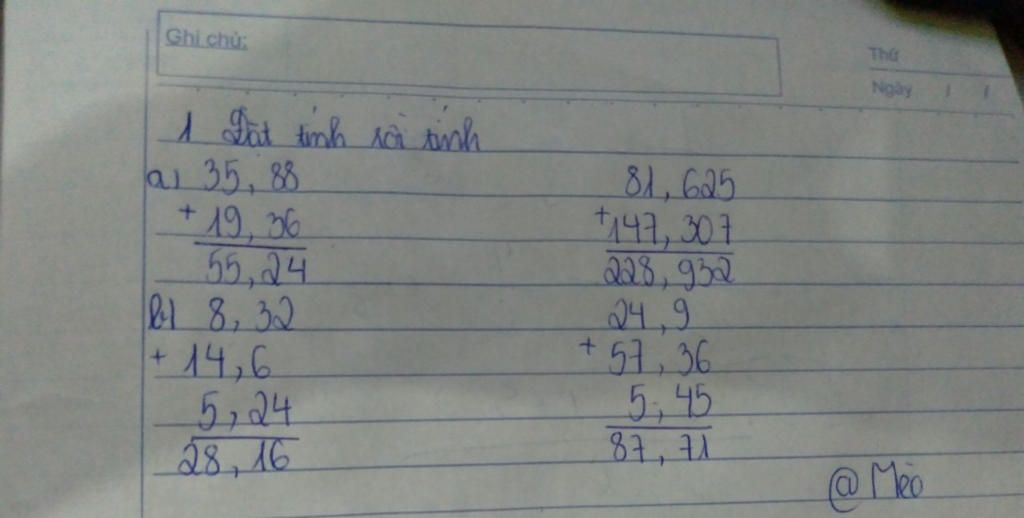 Ghi chú:
Thứ
Ngày / /
1 Đặt tính rồi tính
a) 35,88 81,625
+ 19,36 + 147,307
55,24 228,932
b) 8,32 24,9
+ 14,6 + 57,36
5,24 5,45
28,16 87,71
@ Mèo